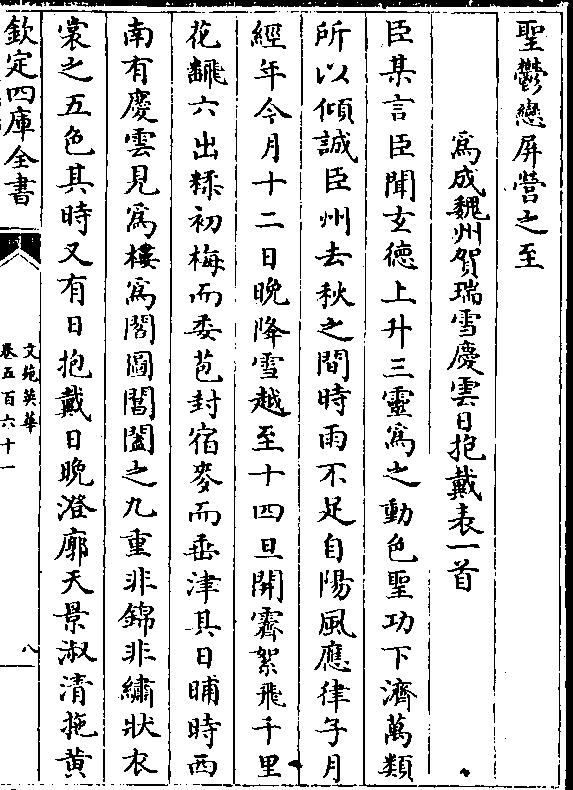 聖鬱戀屏營之至
爲成魏州賀瑞雪慶雲日抱戴表一首
臣某言臣聞玄德上升三靈爲之動色聖功下濟萬類
所以傾誠臣州去秋之間時雨不足自陽風應律子月
經年今月十二日晚降雪越至十四旦開霽絮飛千里
花飜六出糅初梅而委苞封宿麥而垂津其日晡時西
南有慶雲見爲樓爲閣圖閶闔之九重非錦非繡狀衣
裳之五色其時又有日抱戴日晩澄廓天景淑清拖黄
欽定四庫全書
文苑英華
卷五百六十一
八